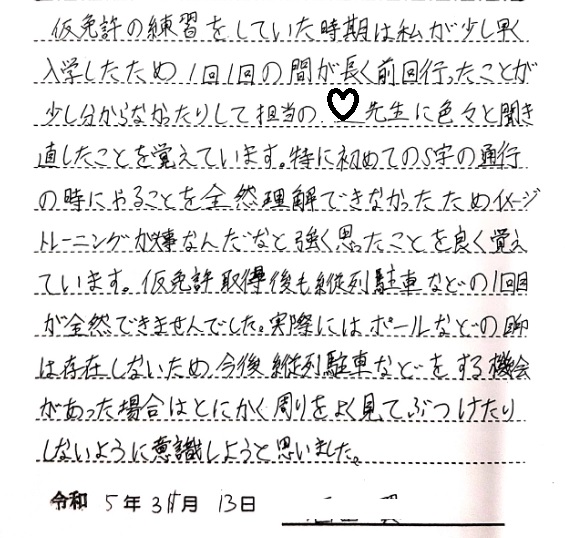 仮免許の練習をしていた時期は私が少し早く
入学したため1回1回の間が長く前回行ったことが
少し分からなかったりして担当の 先生に色々と聞き
直したことを覚えています。特に初めてのS字の通行
の時にやることを全然理解できなかったためイメージ
トレーニングが大事なんだなと強く思ったことを良く覚え
ています。仮免許取得後も縦列駐車などの1回目
が全然できませんでした。実際にはポールなどの目印
は存在しないため今後縦列駐車などをする機会
があった場合はとにかく周りをよく見てぶつけたり
しないように意識しようと思いました。
令和 5年 3月 13日